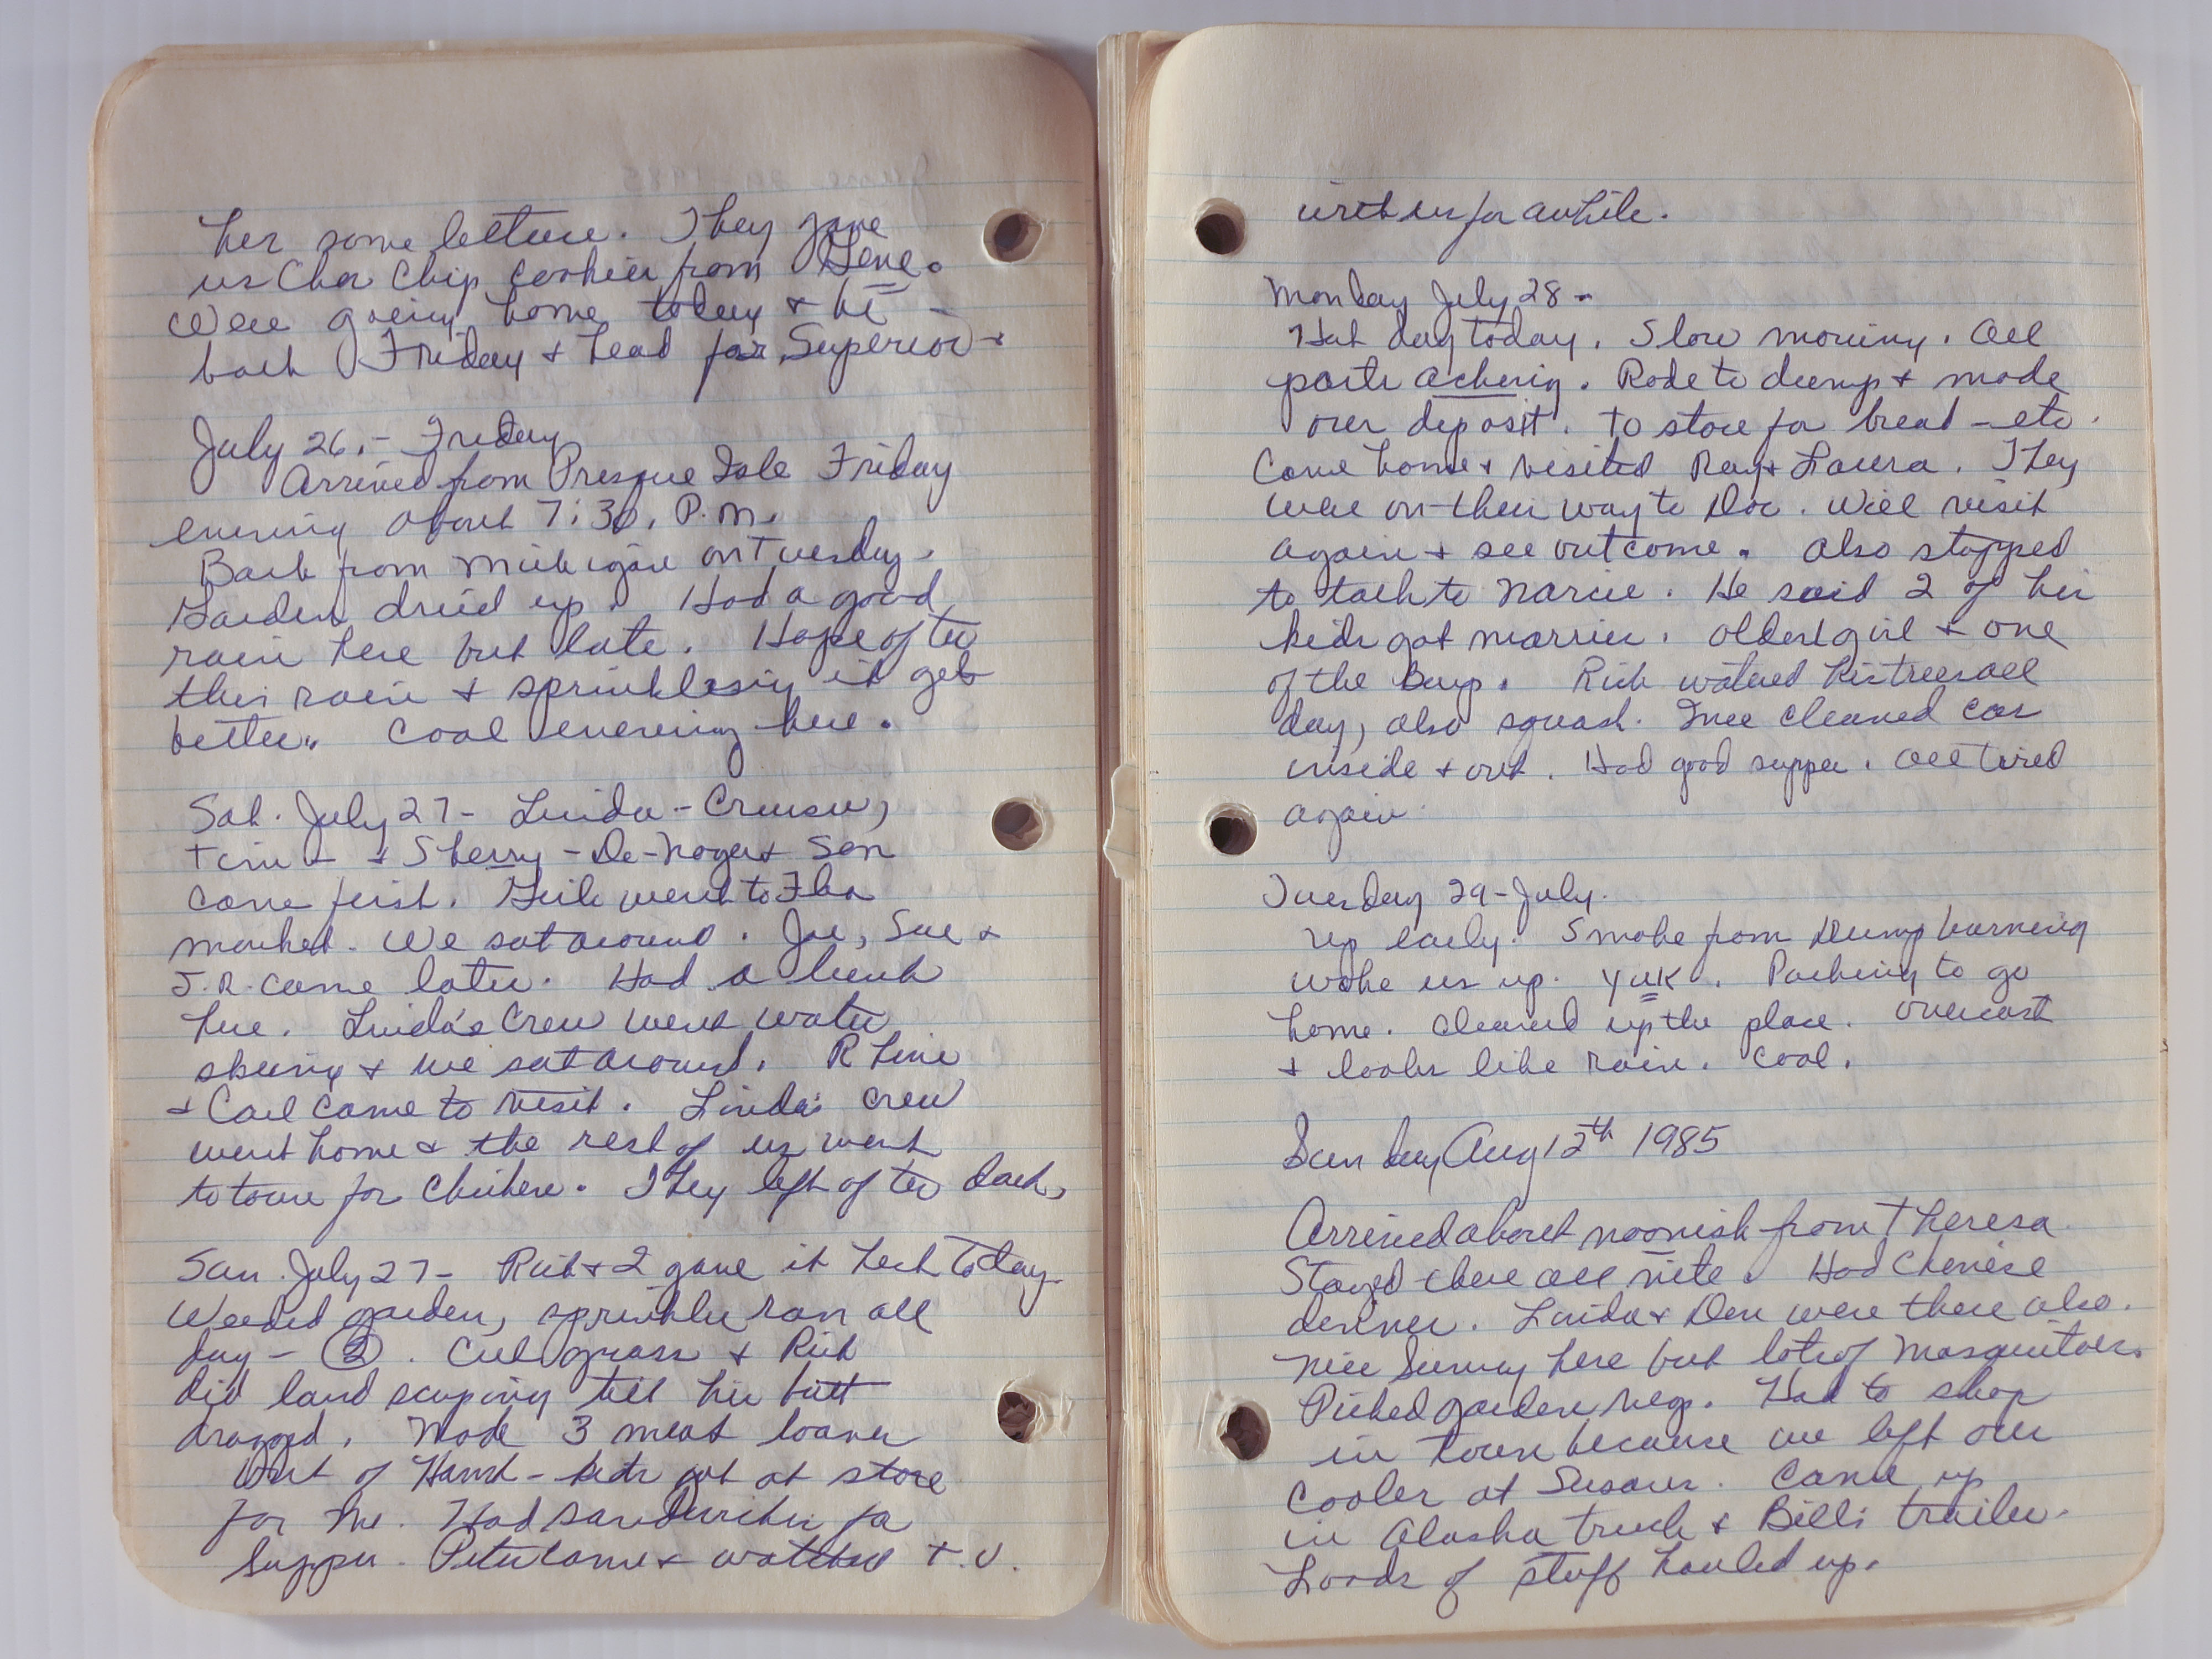 her some lettuce. They gave
us Choc Chip cookies from Gene.
Were going home today & be
back Friday & head for Superior
July 26. - Friday
Arrived from Presque Isle Friday
evening about 7:30. P.M.
Back from Michigan on Tuesday.
Garden dried up. Had a good
rain here but late. Hope after
this rain & sprinkling it gets
better. Cool evening here.
Sat. July 27 - Linda - Crusu,
Tim & & Sherry - De-Noyer Son
came first. Girls went to Flea
market. We sat around. Joe, Sue &
J.R. came later. Had a lunch
here. Linda's Crew went water
skiing & we sat around. R Line
& Carl came to visit. Linda's crew
went home & the rest of us went
to town for Chicken. They left after dark,
Sun. July 27 - Rich & I gave it heck today.
Weeded garden, sprinkler ran all
day - 2. Cut grass & Rich
did landscaping till his butt
dragged. Made 3 meat loaves
out of Hamb - kids got at store
for me. Had sandwiches for
Supper. Peter came & watched T.V.
with us for awhile.
Monday July 28 -
Hot day today. Slow morning. All
parts aching. Rode to dump & made
our deposit. To store for bread - etc.
Came home & visited Ray & Laura. They
were on their way to Doc. Will visit
again & see outcome. Also stopped
to talk to Narcie. He said 2 of his
kids got married. Oldest girl & one
of the Boys. Rich watered his trees all
day, also squash. Mee cleaned car
inside & out. Had good supper. All tired
again.
Tuesday 29 - July.
Up early. Smoke from Dump burning
woke us up. YUK. Packing to go
home. Cleaned up the place. Overcast
& looks like rain. Cool.
Sunday Aug 12th 1985
Arrived about noonish from Theresa.
Stayed there all nite. Had Chinese
dinner. Linda & Den were there also.
Nice Sunny here but lots of Mosquitoes.
Picked garden veg. Had to shop
in town because we left our
Cooler at Susans. Came up
in Alaska truck & Bills trailer.
Loads of stuff hauled up.